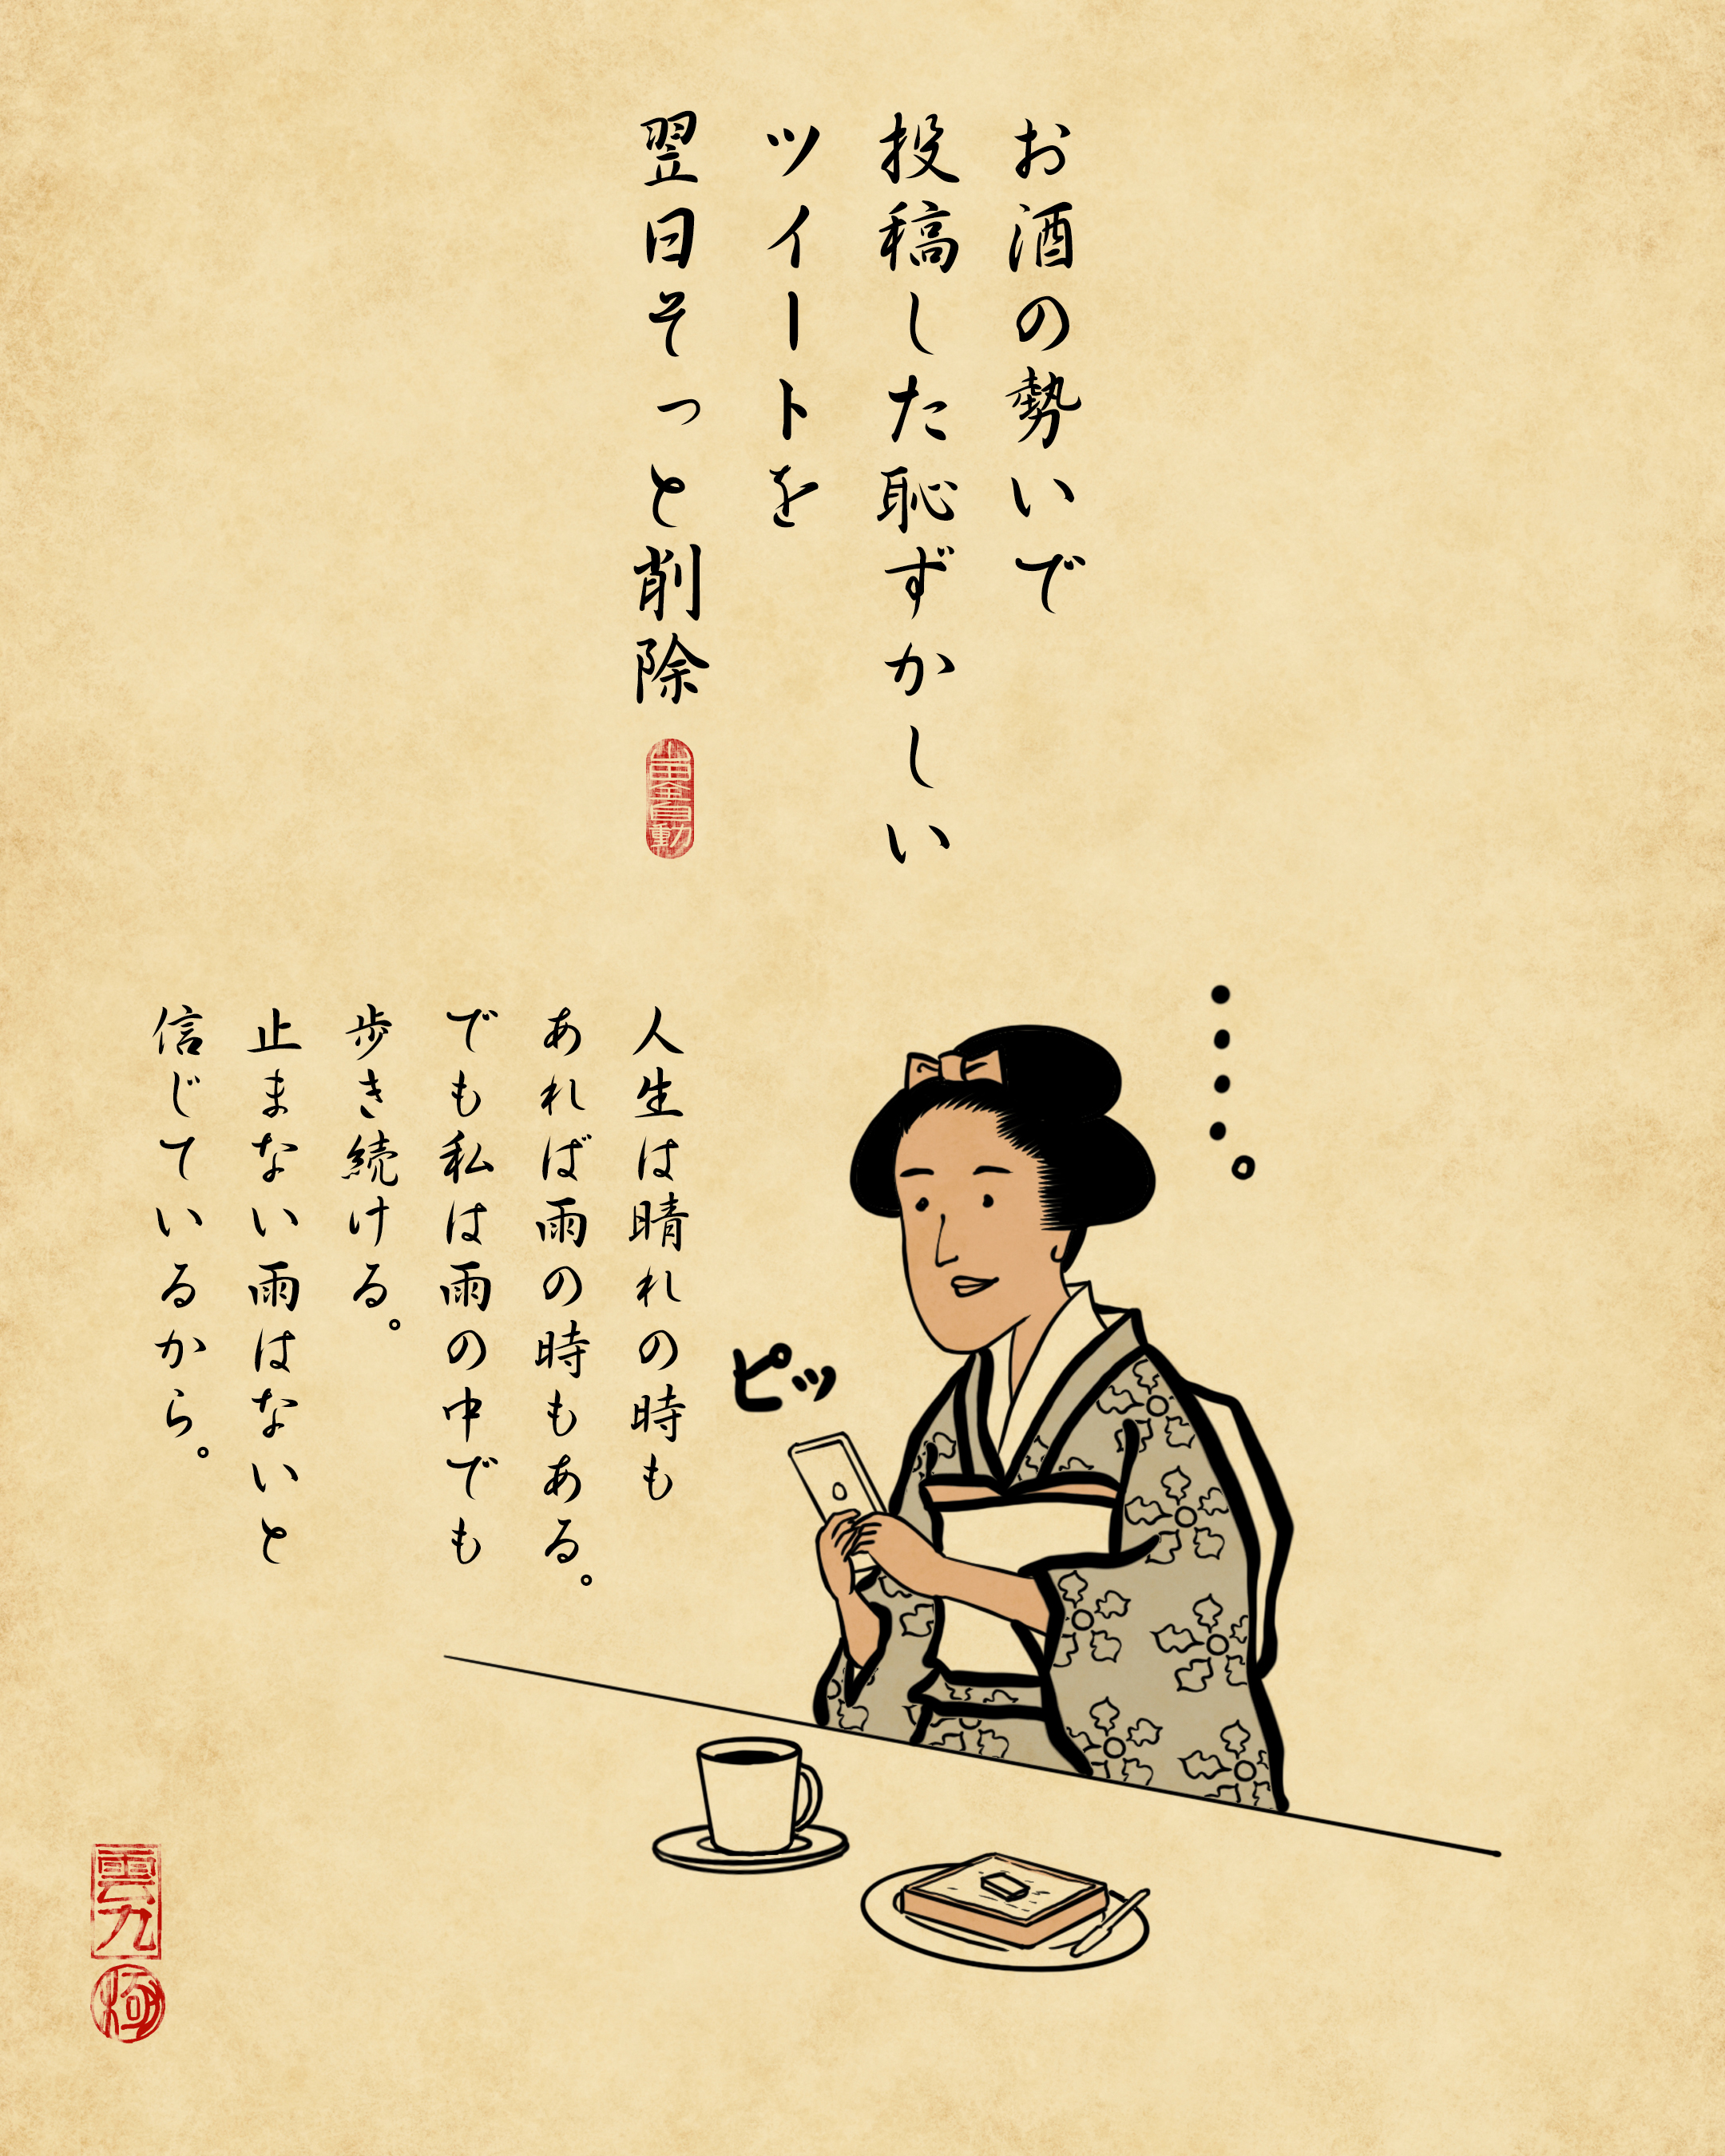 お酒の勢いで
投稿した恥ずかしい
ツイートを
翌日そっと削除
人生は晴れの時も
あれば雨の時もある。
でも私は雨の中でも
歩き続ける。
止まない雨はないと
信じているから。
・・・・。
ピッ
雲九
極